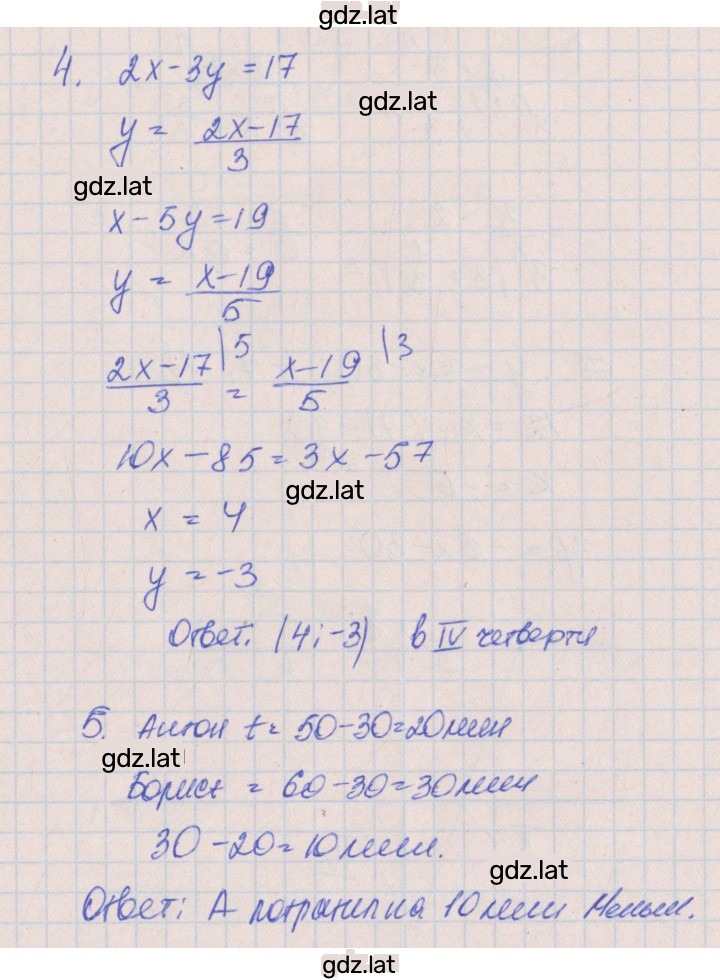 gdz.lat
4. 2x-3y=17
gdz.lat
y = (2x-17)/3
gdz.lat
x-5y=19
y = (x-19)/5
(2x-17)/3 |5 = (x-19)/5 |3
10x-85=3x-57
gdz.lat
x = 4
y = -3
Ответ: (4;-3) в IV четверти
5. Антон t= 50-30=20мин
gdz.lat
Борис t = 60-30=30мин
30-20=10мин.
gdz.lat
Ответ: А потратил на 10мин меньш.
gdz.lat